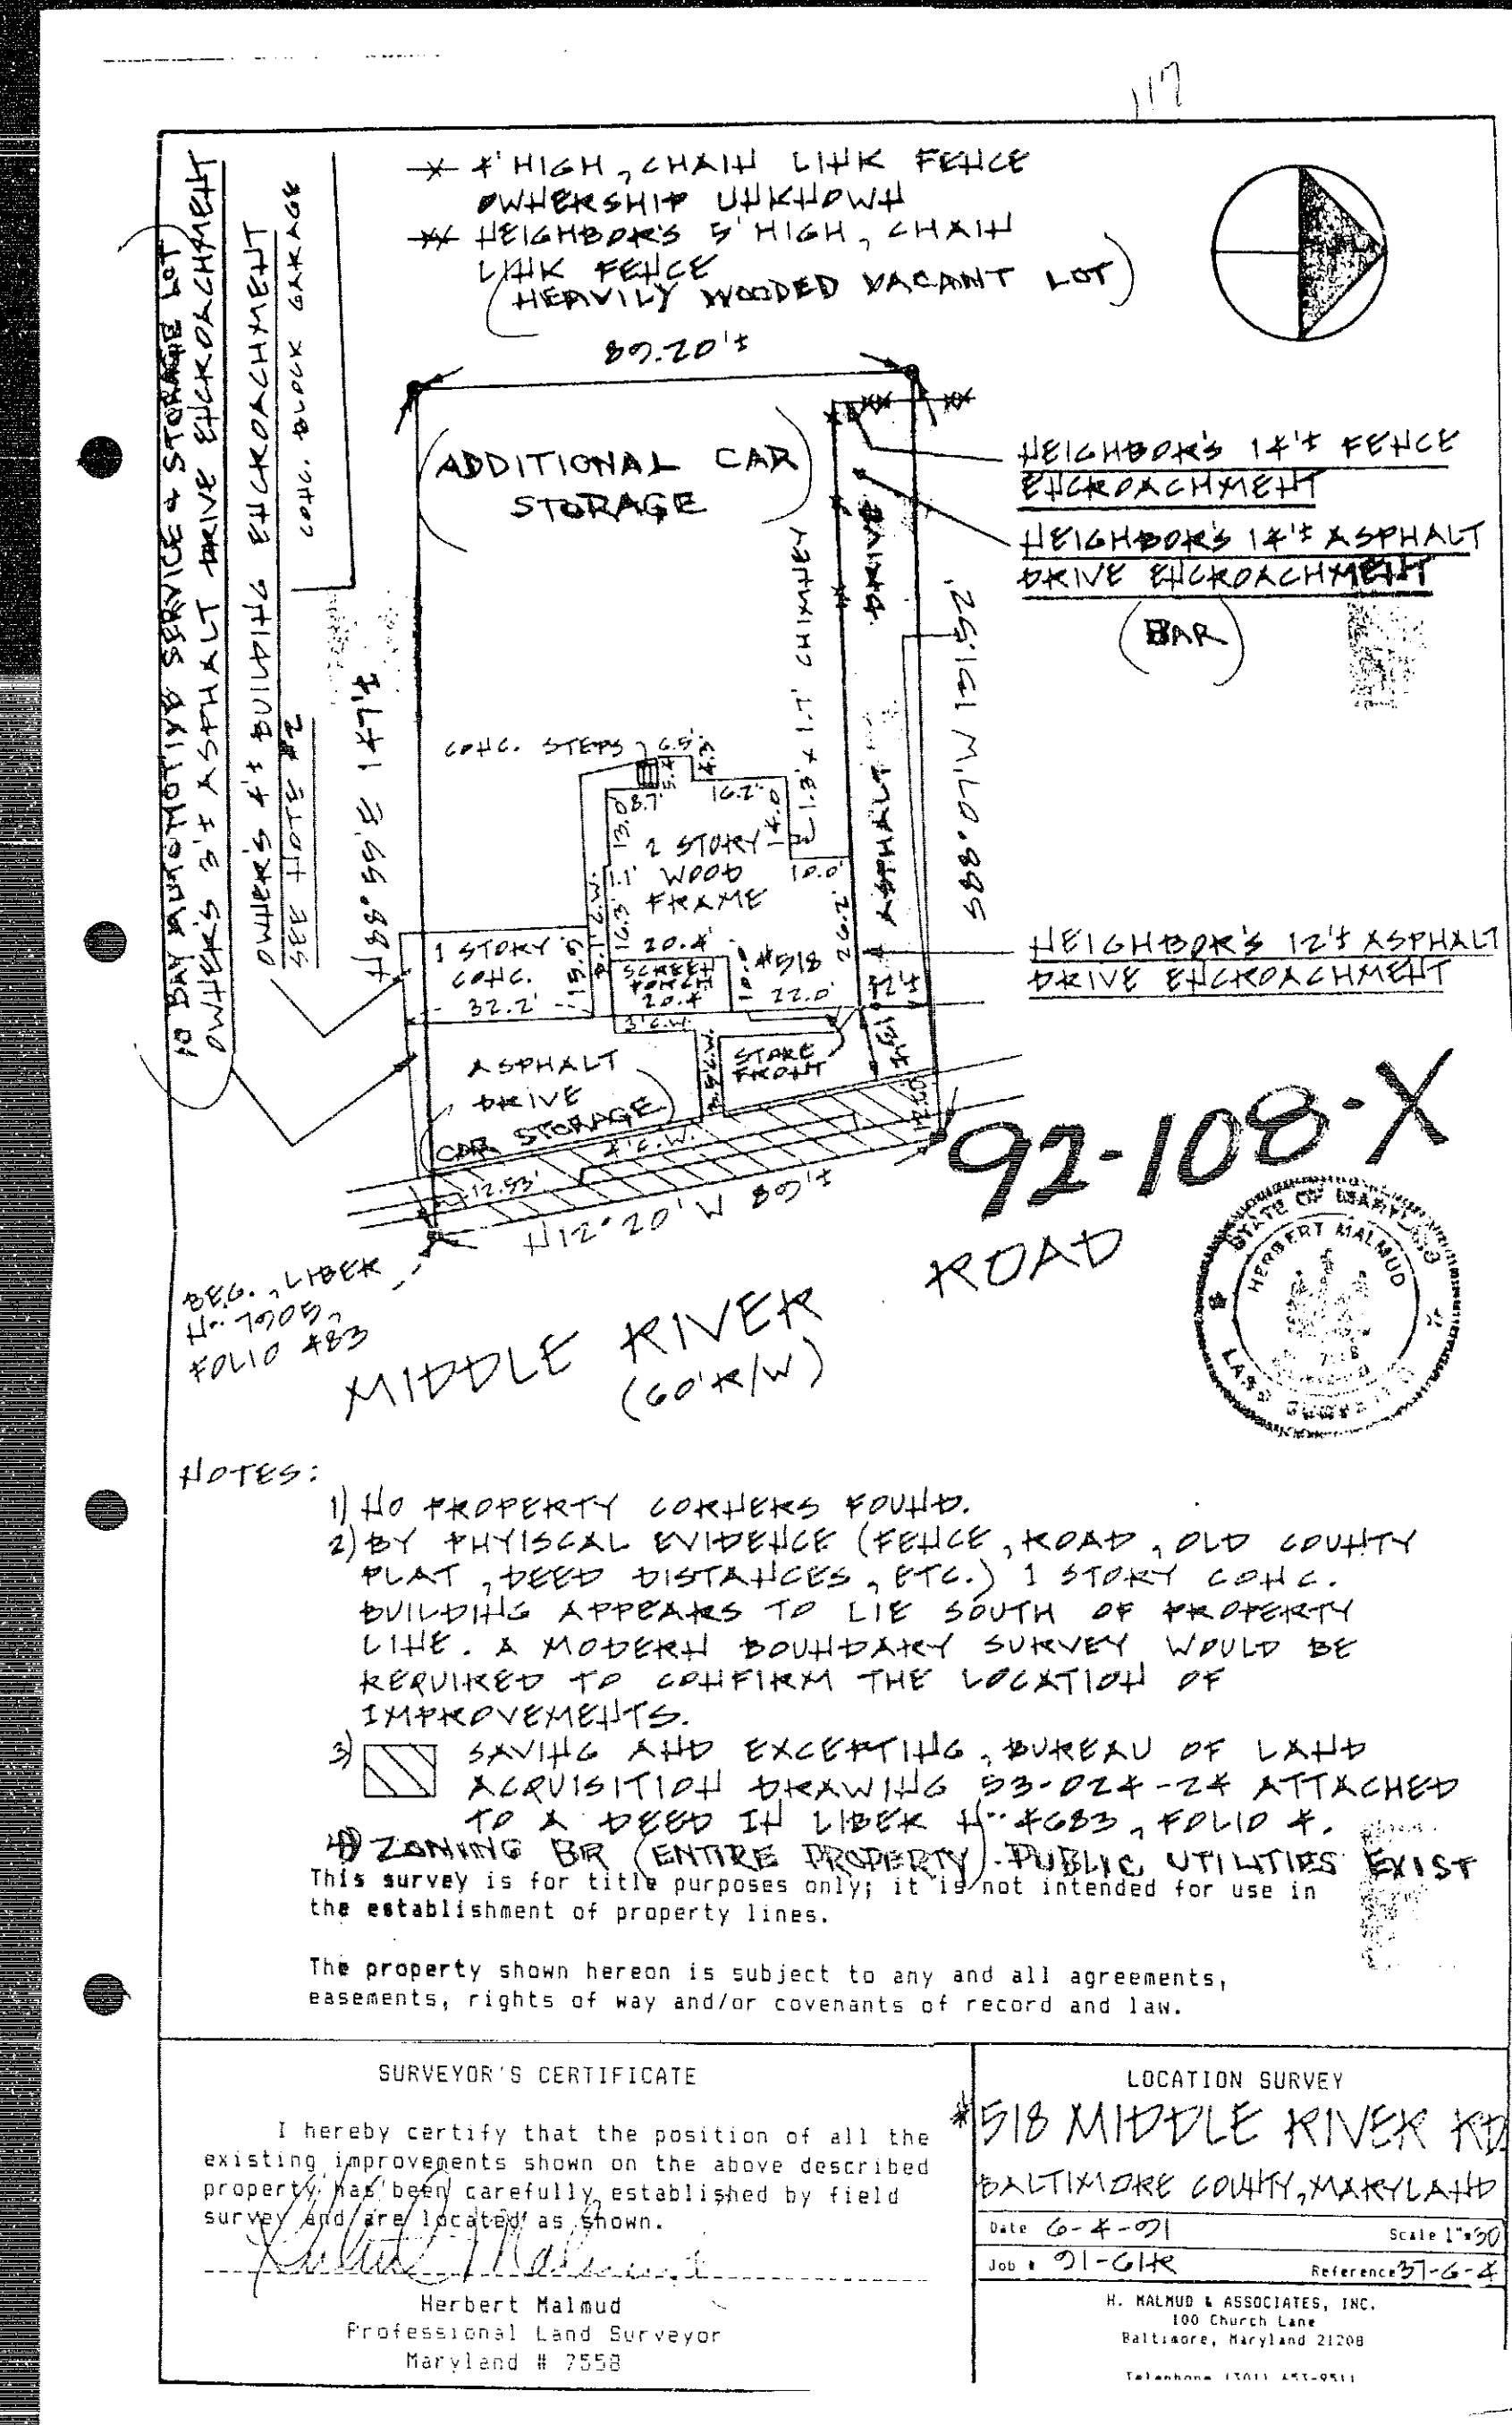 117
4' HIGH, CHAIN LINK FENCE
OWNERSHIP UNKNOWN
NEIGHBOR'S 5' HIGH, CHAIN
LINK FENCE
(HEAVILY WOODED VACANT LOT)
89.20'±
TO BAY AUTOMOTIVE SERVICE & STORAGE LOT
OWNER'S 3'± ASPHALT DRIVE ENCROACHMENT
OWNER'S 4'± BUILDING ENCROACHMENT
SEE NOTE #2
CONC. BLOCK GARAGE
N88°55'E 147'±
(ADDITIONAL CAR
STORAGE)
NEIGHBOR'S 14'± FENCE
ENCROACHMENT
NEIGHBOR'S 14'± ASPHALT
DRIVE ENCROACHMENT
(BAR)
1.3' x 1.7' CHIMNEY
ASPHALT
S88°07'W 131.52'
CONC. STEPS
6.5'
5.4'
4.3'
8.7'
16.2'
13.0'
14.0'
2 STORY
WOOD
FRAME
10.0'
16.3'
26.2'
1 STORY
CONC.
32.2'
15.9'
20.4'
SCREEN
PORCH
20.4'
10.0'
#518
22.0'
12'±
NEIGHBOR'S 12'± ASPHALT
DRIVE ENCROACHMENT
3'C.W.
ASPHALT
DRIVE
(CAR STORAGE)
STORE
FRONT
13'±
4'C.W.
12.53'
N12°20'W 89'±
92-108-X
BEG., LIBER
No. 7905,
FOLIO 483
MIDDLE RIVER ROAD
(60'R/W)
STATE OF MARYLAND
HERBERT MALMUD
LAND SURVEYOR
NOTES:
1) NO PROPERTY CORNERS FOUND.
2) BY PHYISCAL EVIDENCE (FENCE, ROAD, OLD COUNTY
PLAT, DEED DISTANCES, ETC.) 1 STORY CONC.
BUILDING APPEARS TO LIE SOUTH OF PROPERTY
LINE. A MODERN BOUNDARY SURVEY WOULD BE
REQUIRED TO CONFIRM THE LOCATION OF
IMPROVEMENTS.
3) SAVING AND EXCEPTING, BUREAU OF LAND
ACQUISITION DRAWING 53-024-24 ATTACHED
TO A DEED IN LIBER No. 4683, FOLIO 4.
4) ZONING BR (ENTIRE PROPERTY). PUBLIC UTILITIES EXIST
This survey is for title purposes only; it is not intended for use in
the establishment of property lines.
The property shown hereon is subject to any and all agreements,
easements, rights of way and/or covenants of record and law.
SURVEYOR'S CERTIFICATE
I hereby certify that the position of all the
existing improvements shown on the above described
property has been carefully established by field
survey and are located as shown.
Herbert Malmud
Herbert Malmud
Professional Land Surveyor
Maryland # 7558
LOCATION SURVEY
#518 MIDDLE RIVER RD.
BALTIMORE COUNTY, MARYLAND
Date 6-4-91
Scale 1"=30'
Job # 91-61HR
Reference 37-6-4
H. MALMUD & ASSOCIATES, INC.
100 Church Lane
Baltimore, Maryland 21208
Telephone (301) 653-9511